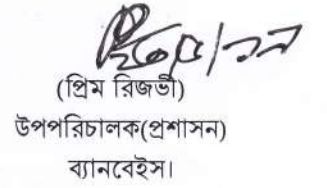 (প্রিম রিজভী)
উপপরিচালক(প্রশাসন)
ব্যানবেইস।